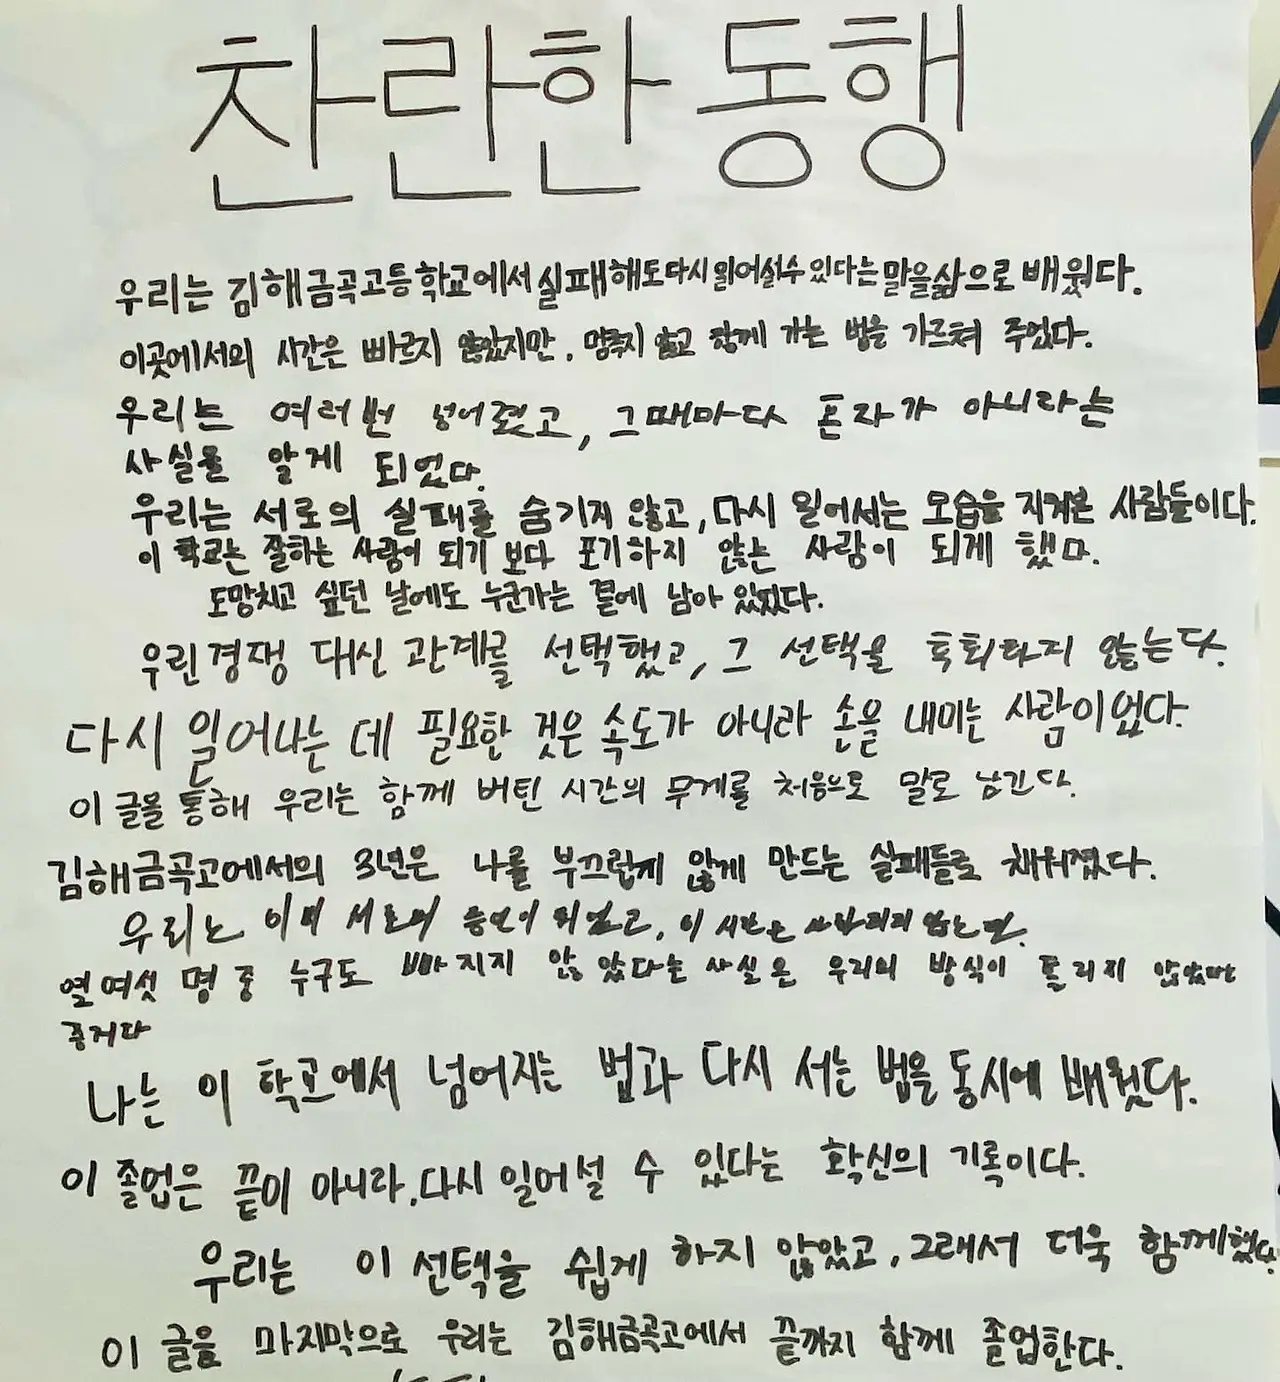 찬란한 동행
우리는 김해금곡고등학교에서 실패해도 다시 일어설 수 있다는 말을 삶으로 배웠다.
이곳에서의 시간은 빠르지 않았지만, 멈추지 않고 함께 가는 법을 가르쳐 주었다.
우리는 여러 번 넘어졌고, 그때마다 혼자가 아니라는
사실을 알게 되었다.
우리는 서로의 실패를 숨기지 않고, 다시 일어서는 모습을 지켜본 사람들이다.
이 학교는 잘하는 사람이 되기 보다 포기하지 않는 사람이 되게 했다.
도망치고 싶던 날에도 누군가는 곁에 남아 있었다.
우린 경쟁 대신 관계를 선택했고, 그 선택을 후회하지 않는다.
다시 일어나는 데 필요한 것은 속도가 아니라 손을 내미는 사람이었다.
이 글을 통해 우리는 함께 버틴 시간의 무게를 처음으로 말로 남긴다.
김해금곡고에서의 3년은 나를 부끄럽지 않게 만드는 실패들로 채워졌다.
우리는 이미 서로의 증인이 되었고, 이 시간은 사라지지 않는다.
열여섯 명 중 누구도 빠지지 않았다는 사실은 우리의 방식이 틀리지 않았다는
증거다
나는 이 학교에서 넘어지는 법과 다시 서는 법을 동시에 배웠다.
이 졸업은 끝이 아니라, 다시 일어설 수 있다는 확신의 기록이다.
우리는 이 선택을 쉽게 하지 않았고, 그래서 더욱 함께했다.
이 글을 마지막으로 우리는 김해금곡고에서 끝까지 함께 졸업한다.